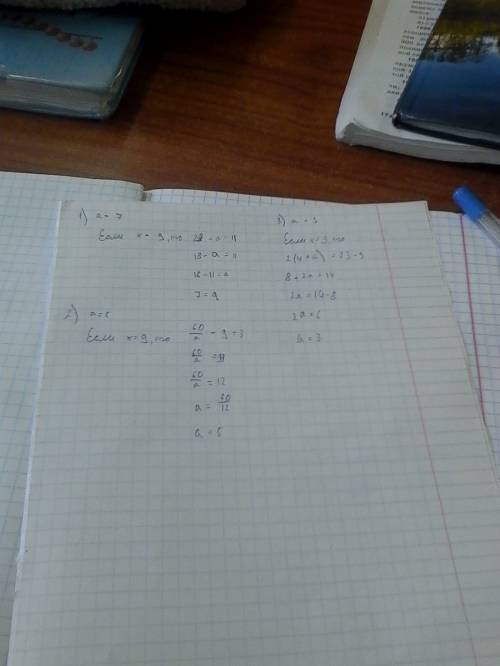 1) a = 7
Если x = 9, то 18 - a = 11
18 - a = 11
18 - 11 = a
7 = a
2) a = 5
Если x = 9, то 60/a - 9 = 3
60/a =
60/a = 12
a = 60/12
a = 5
3) a = 3
Если x = 9, то
2(4+a) = 23 - 9
8 + 2a = 14
2a = 14 - 8
2a = 6
a = 3